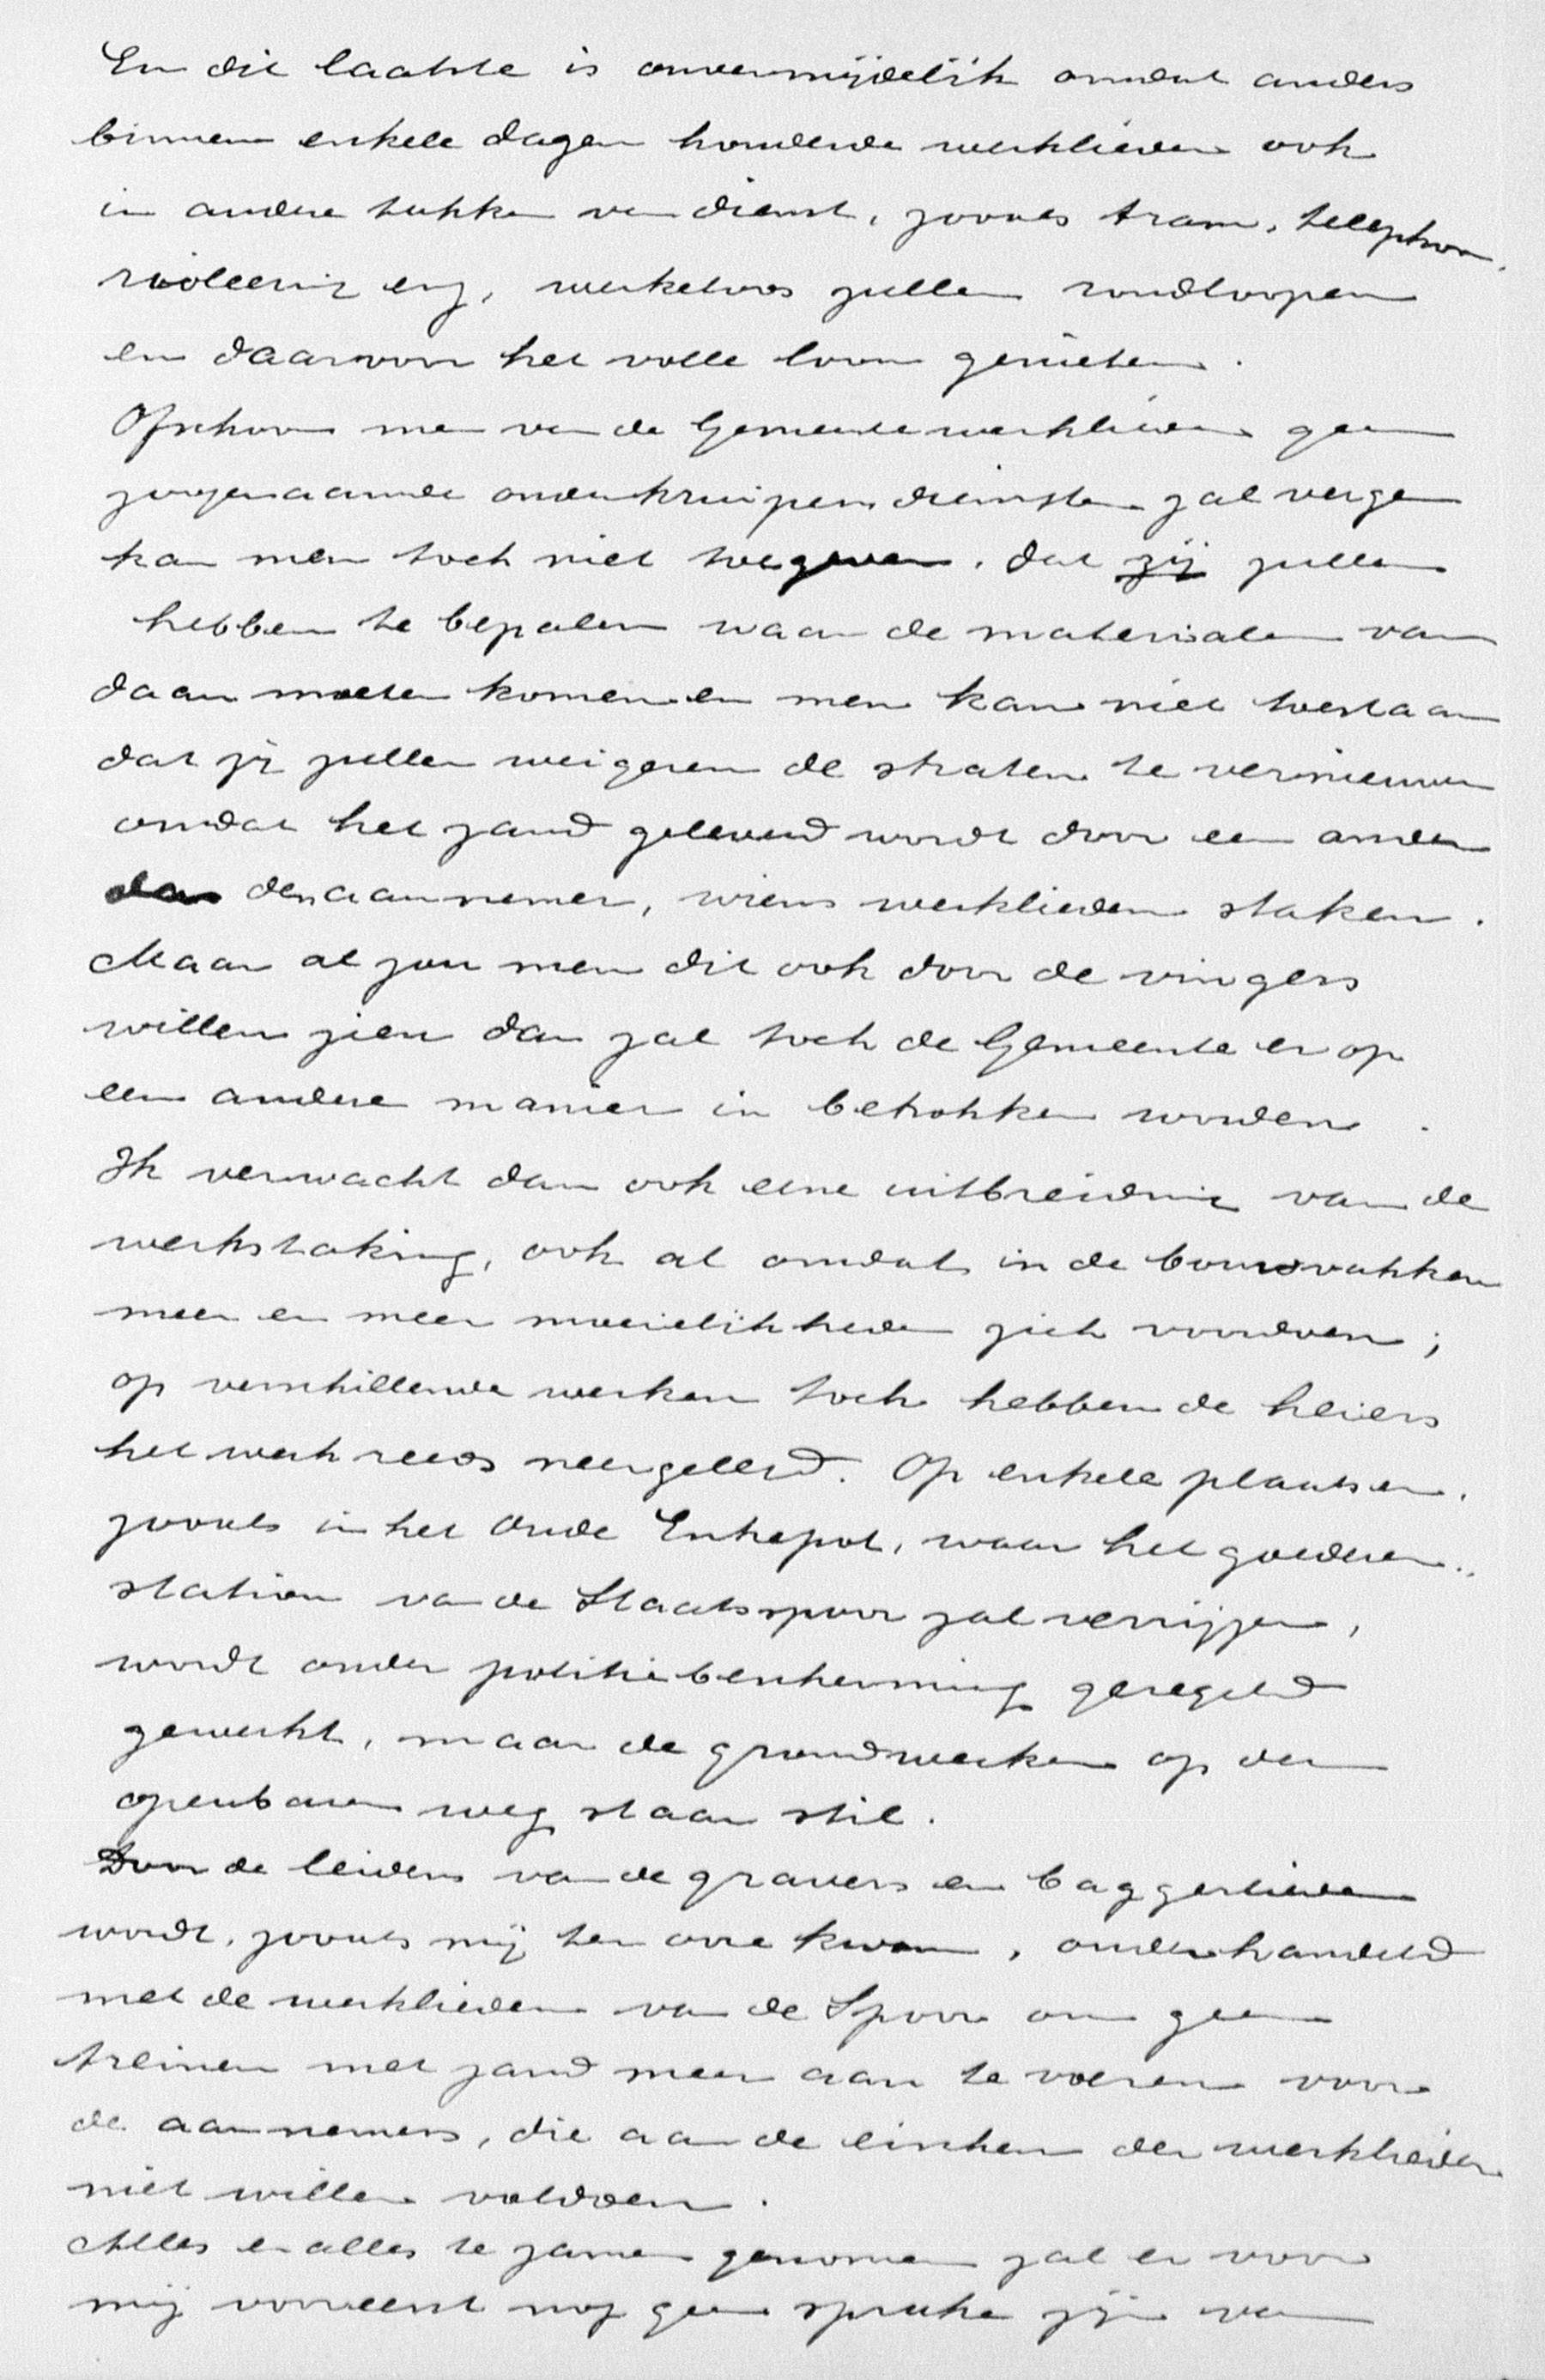 En dit laatste is onvermijdelijk omdat anders
binnen enkele dagen honderde werklieden ook
in andere takken van dienst, zooals tram, telephoon,
rioleering enz, werkeloos zullen rondloopen
en daarvoor het volle loon genieten.
Ofschoon men van de Gemeentewerklieden geen
zoogenaamde onderkruipersdiensten zal vergen
kan men toch niet toegeven, dat zij zullen
hebben te bepalen waar de materialen van
daan moeten komen en men kan niet toestaan
dat zij zullen weigeren de straten te vernieuwen
omdat het zand geleverd wordt door een ander
dan den aannemer, wiens werklieden staken.
Maar al zou men dit ook door de vingers
willen zien dan zal toch de Gemeente er op
een andere manier in betrokken worden.
Ik verwacht dan ook eene uitbreiding van de
werkstaking, ook al omdat in de bouwvakken
meer en meer moeielijkheden zich voordoen;
op verschillende werken toch hebben de heiers
het werk reeds neergelegd. Op enkele plaatsen,
zooals in het Oude Entrepot, waar het goederen-
station van de Staatsspoor zal verrijzen,
wordt onder politiebescherming geregeld
gewerkt, maar de grondwerken op den
openbaren weg staan stil.
Door de leiders van de gravers en baggerlieden
wordt, zooals mij ter oore kwam, onderhandeld
met de werklieden van de Spoor om geen
treinen met zand meer aan te voeren voor
de aannemers, die aan de eischen der werklieden
niet willen voldoen.
Alles en alles te zamen genomen zal er voor
mij vooreerst nog geen sprake zijn van